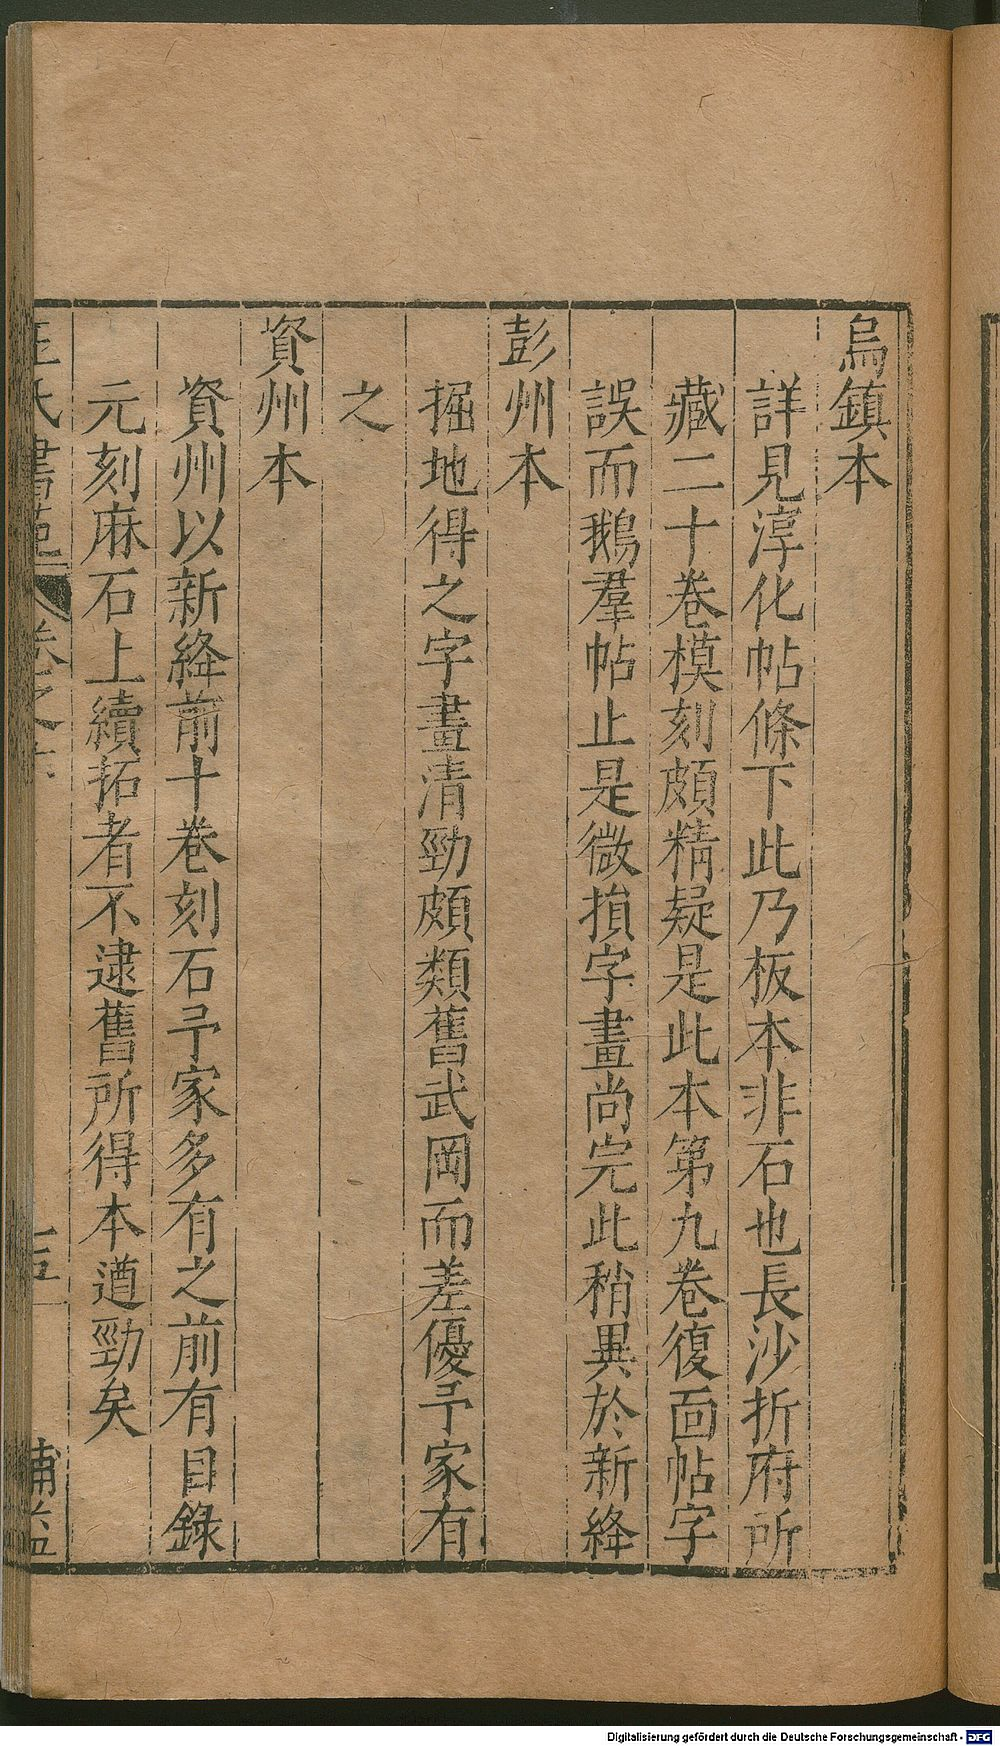 烏鎮本
詳見淳化帖條下此乃板本非石也長沙折府所
藏二十卷模刻頗精疑是此本第九卷復面帖字
誤而鵝羣帖止是微損字畫尚完此稍異於新絳
彭州本
掘地得之字畫清勁頗類舊武岡而差優予家有
之
資州本
資州以新絳前十卷刻石予家多有之前有目錄
元刻麻石上續拓者不逮舊所得本遒勁矣
王氏書苑 卷之六
Digitalisierung gefördert durch die Deutsche Forschungsgemeinschaft - DFG